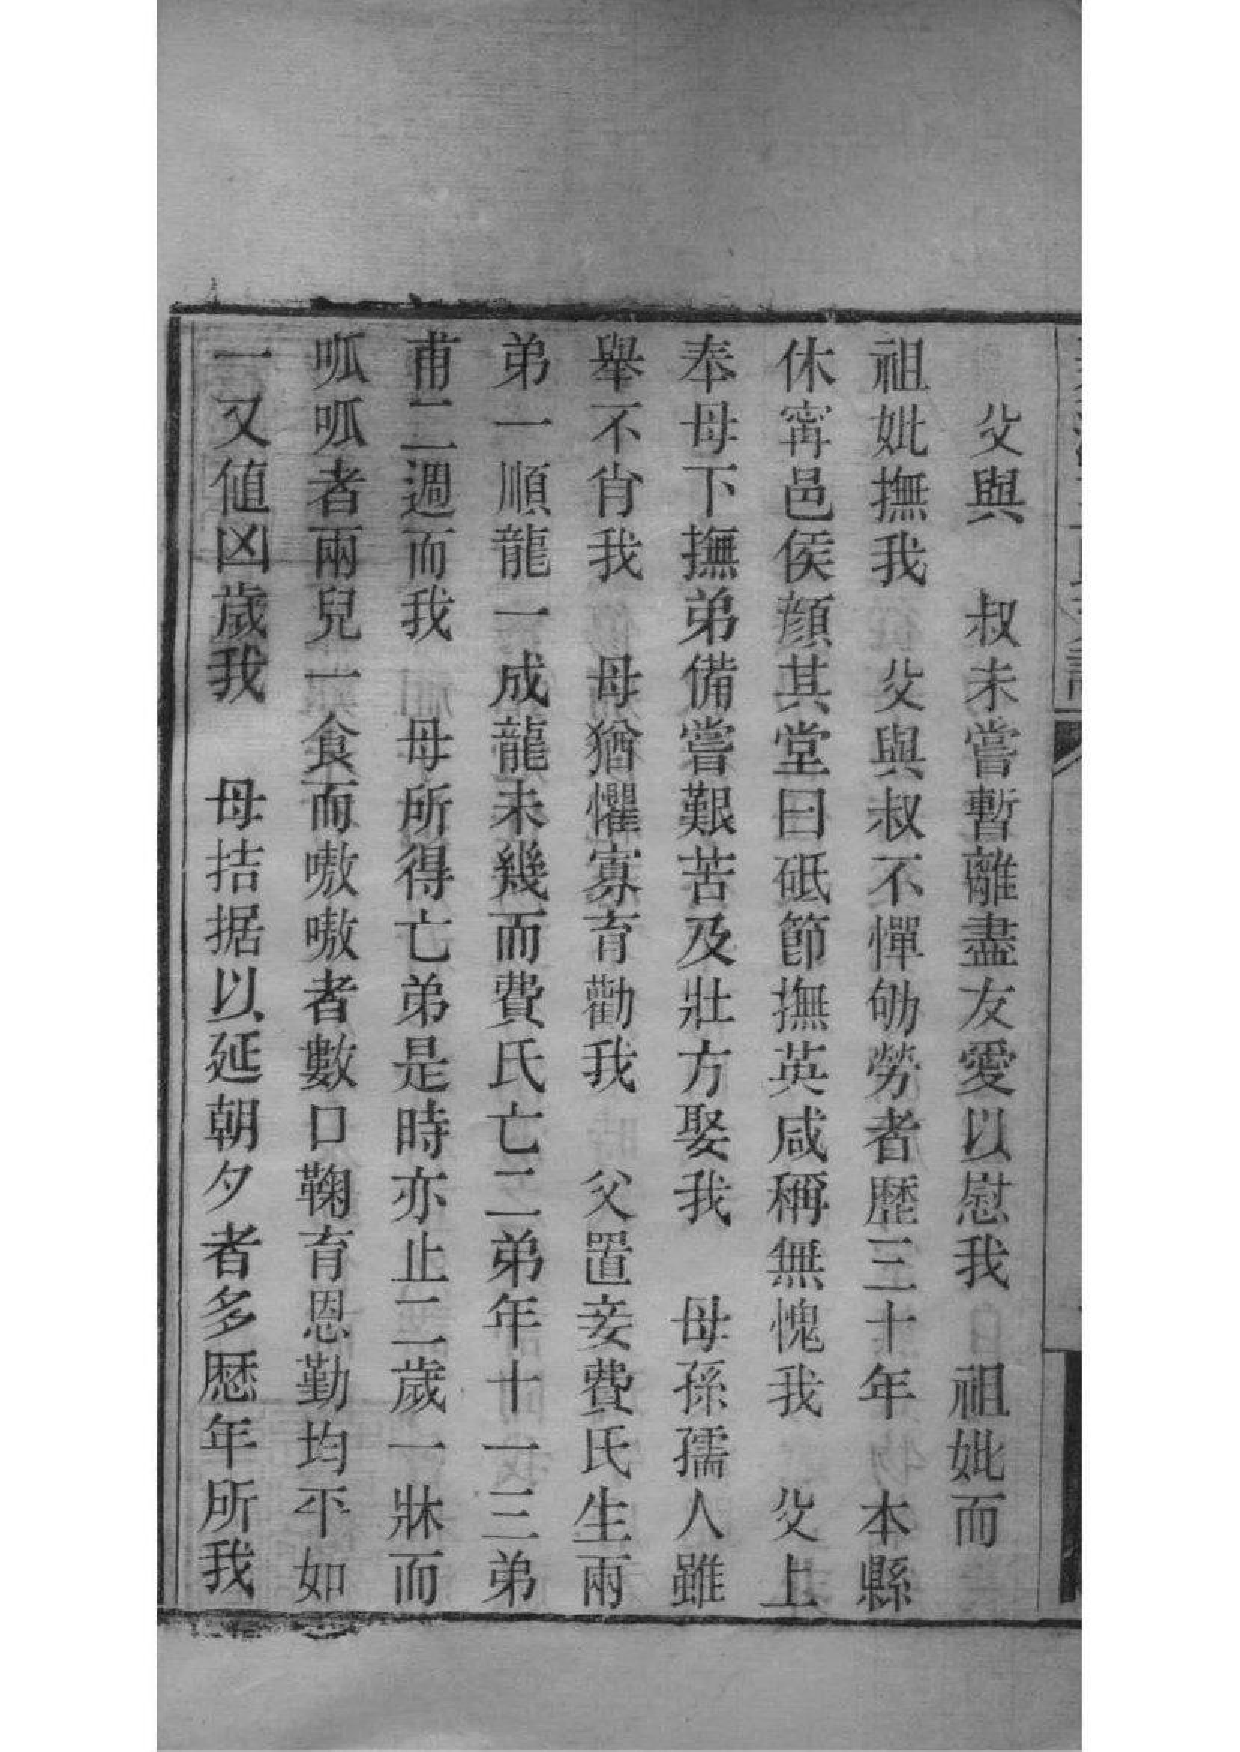 父與　叔未嘗暫離盡友愛以慰我　祖妣而
祖妣撫我　父與叔不憚劬勞者歷三十年　本縣
休寗邑侯顔其堂曰砥節撫英咸稱無愧我　父上
奉母下撫弟備嘗艱苦及壯方娶我　母孫孺人雖
舉不肖我　母猶懼寡育勸我　父置妾費氏生兩
弟一順龍一成龍未幾而費氏亡二弟年十一三弟
甫二週而我　母所得亡弟是時亦止二歲一牀而
呱呱者兩兒一食而嗷嗷者數口鞠育恩勤均平如
一又値凶歲我　母拮据以延朝夕者多歷年所我